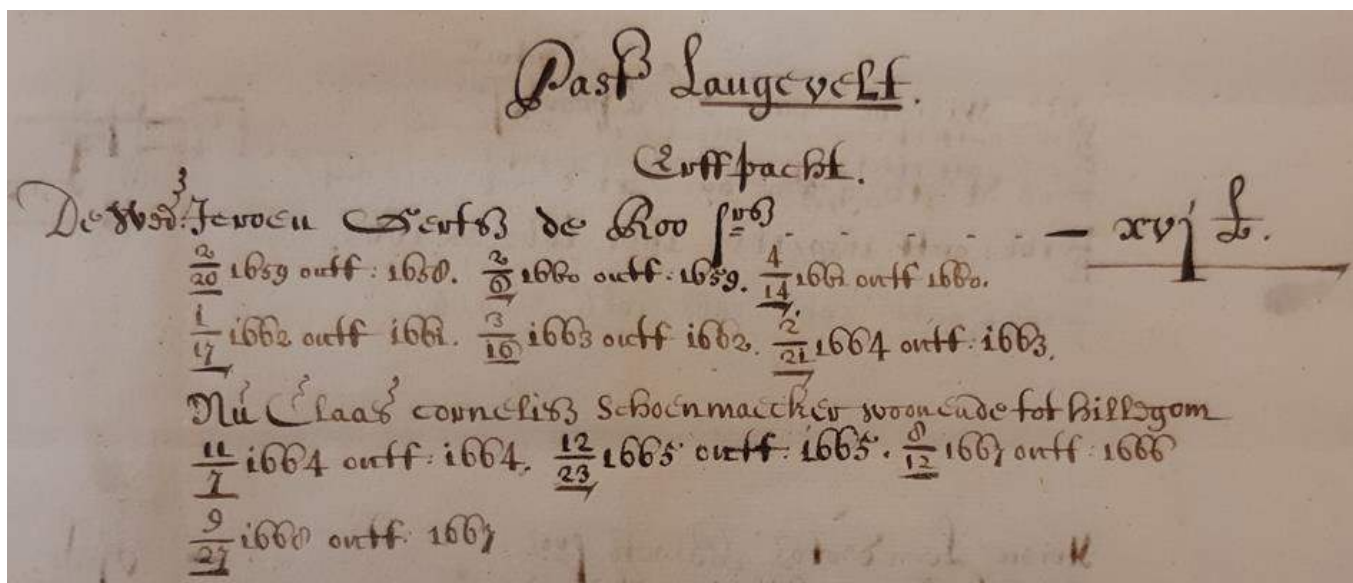 Past Langevelt.
Erffpacht.
De Wed: Jeroen Gertsz de Roo - xvj £.
2/20 1659 ontf: 1658. 2/6 1660 ontf: 1659. 4/14 1661 ontf 1660.
1/17 1662 ontf 1661. 3/16 1663 ontf 1662. 2/21 1664 ontf: 1663.
Nu Claas cornelisz Schoenmaecker woonende tot hillegom
11/7 1664 ontf: 1664. 12/23 1665 ontf: 1665. 8/12 1667 ontf: 1666
9/27 1668 ontf: 1667